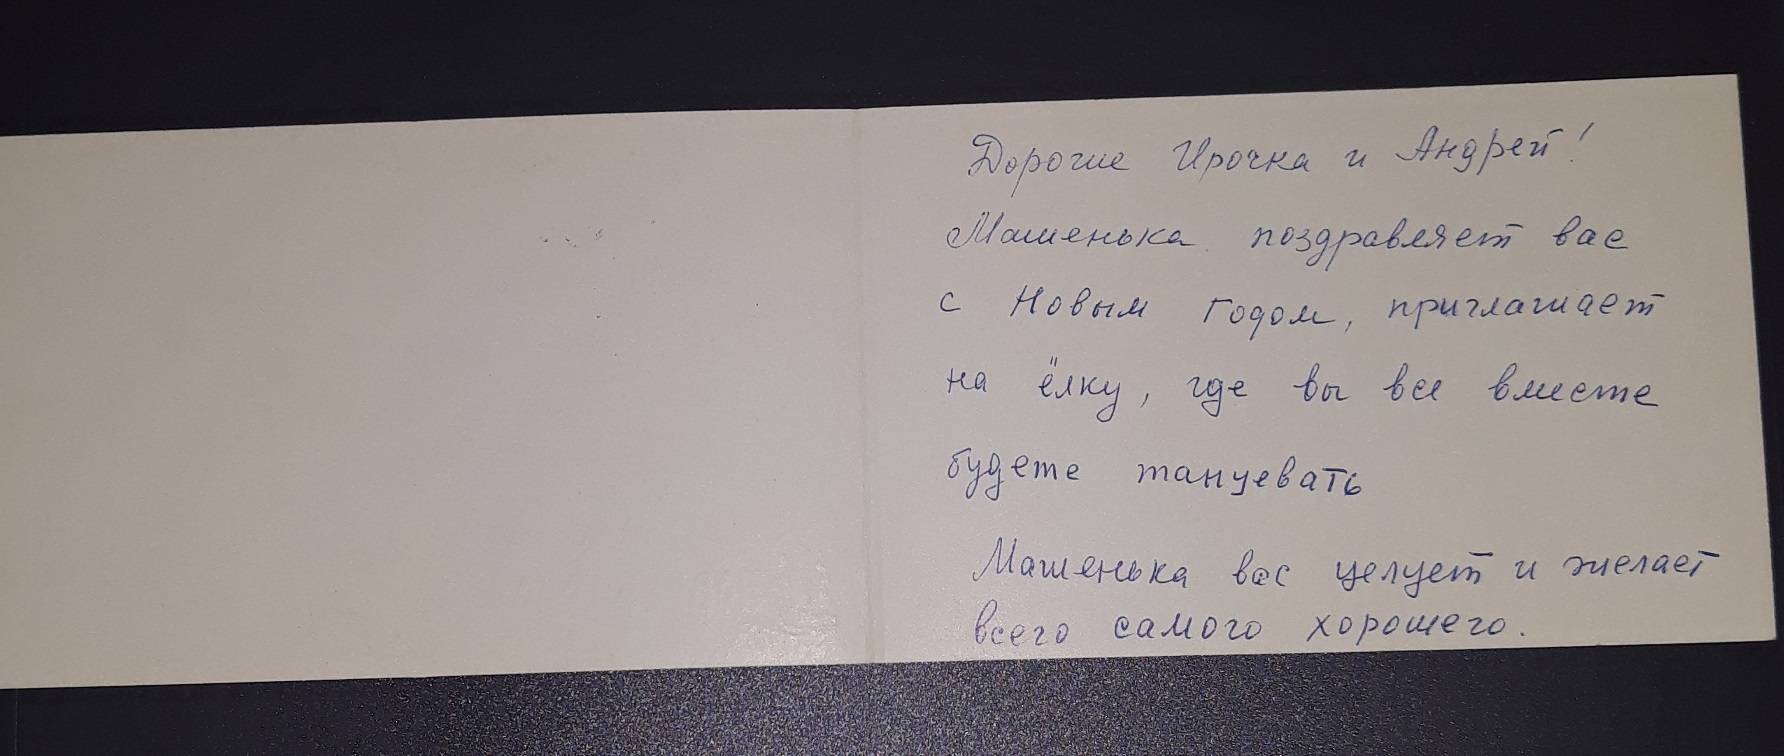 Дорогие Ирочка и Андрей!
Машенька поздравляет вас
с Новым годом, приглашает
на ёлку, где вы все вместе
будете танцевать
Машенька вас целует и желает
всего самого хорошего.